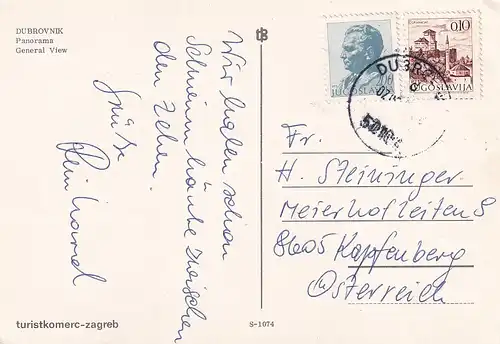 DUBROVNIK
Panorama
General View
Wir haben schon
Schwimmhäute zwischen
den Zehen.
Grüße
Reinhard
turistkomerc-zagreb
S-1074
JUGOSLAVIJA
0,10
JUGOSLAVIJA
DUBR
Fr.
H. Steininger
Meierhofleiten 8
8605 Kapfenberg
Österreich